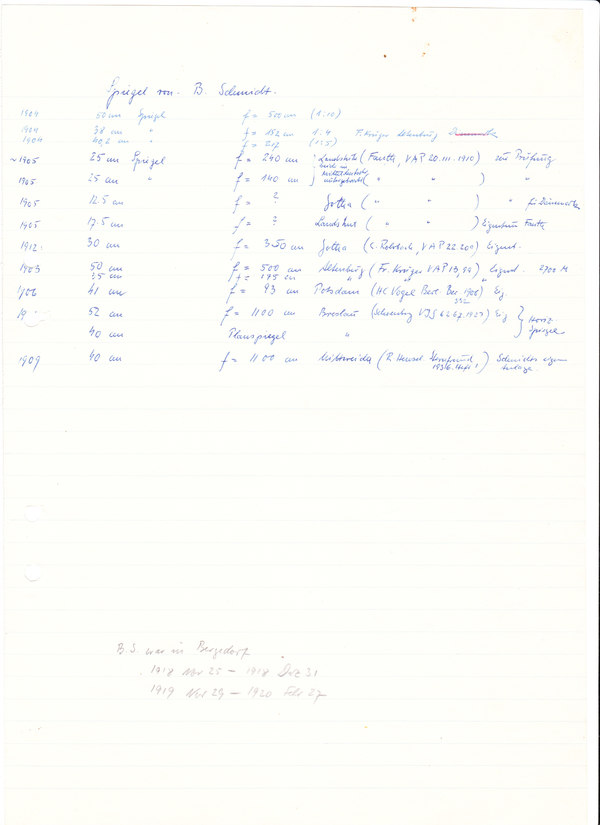 Spiegel von B. Schmidt.
1904 50 cm Spiegel f = 500 cm (1:10)
1904 38 cm " f = 152 cm 1:4 F. Krüger Altenburg
1904 40,2 cm " f = 217 (1:5)
~1905 25 cm Spiegel f = 240 cm Landshut (Fauth, VAP 20.III.1910) zur Prüfung
1905 25 cm " f = 140 cm (" ") "
1905 12.5 cm f = ? Gotha (" ") "
1905 17.5 cm f = ? Landshut (" ") Eigentum Fauth
1912 30 cm f = 350 cm Gotha (VAP 22 200) Eigent.
1903 50 cm f = 500 cm Altenburg (Fr. Krüger VAP 19, 54) Eigent. 2700 M
35 cm f = 175 cm " " "
1906 41 cm f = 93 cm Potsdam (HC Vogel Berl. Ber 1906) Eig.
19 52 cm f = 1100 cm Breslau (Schoenberg VJS 1927) Eig } Horiz.
40 cm Planspiegel " Spiegel
1909 40 cm f = 1100 cm Mittweida (R. Hensel Sternfreund 1936 Heft 1) Schmidts eigene Anlage.
B.S. war in Bergedorf
1918 Nov 25 – 1918 Dez 31
1919 Nov 29 – 1920 Febr 27